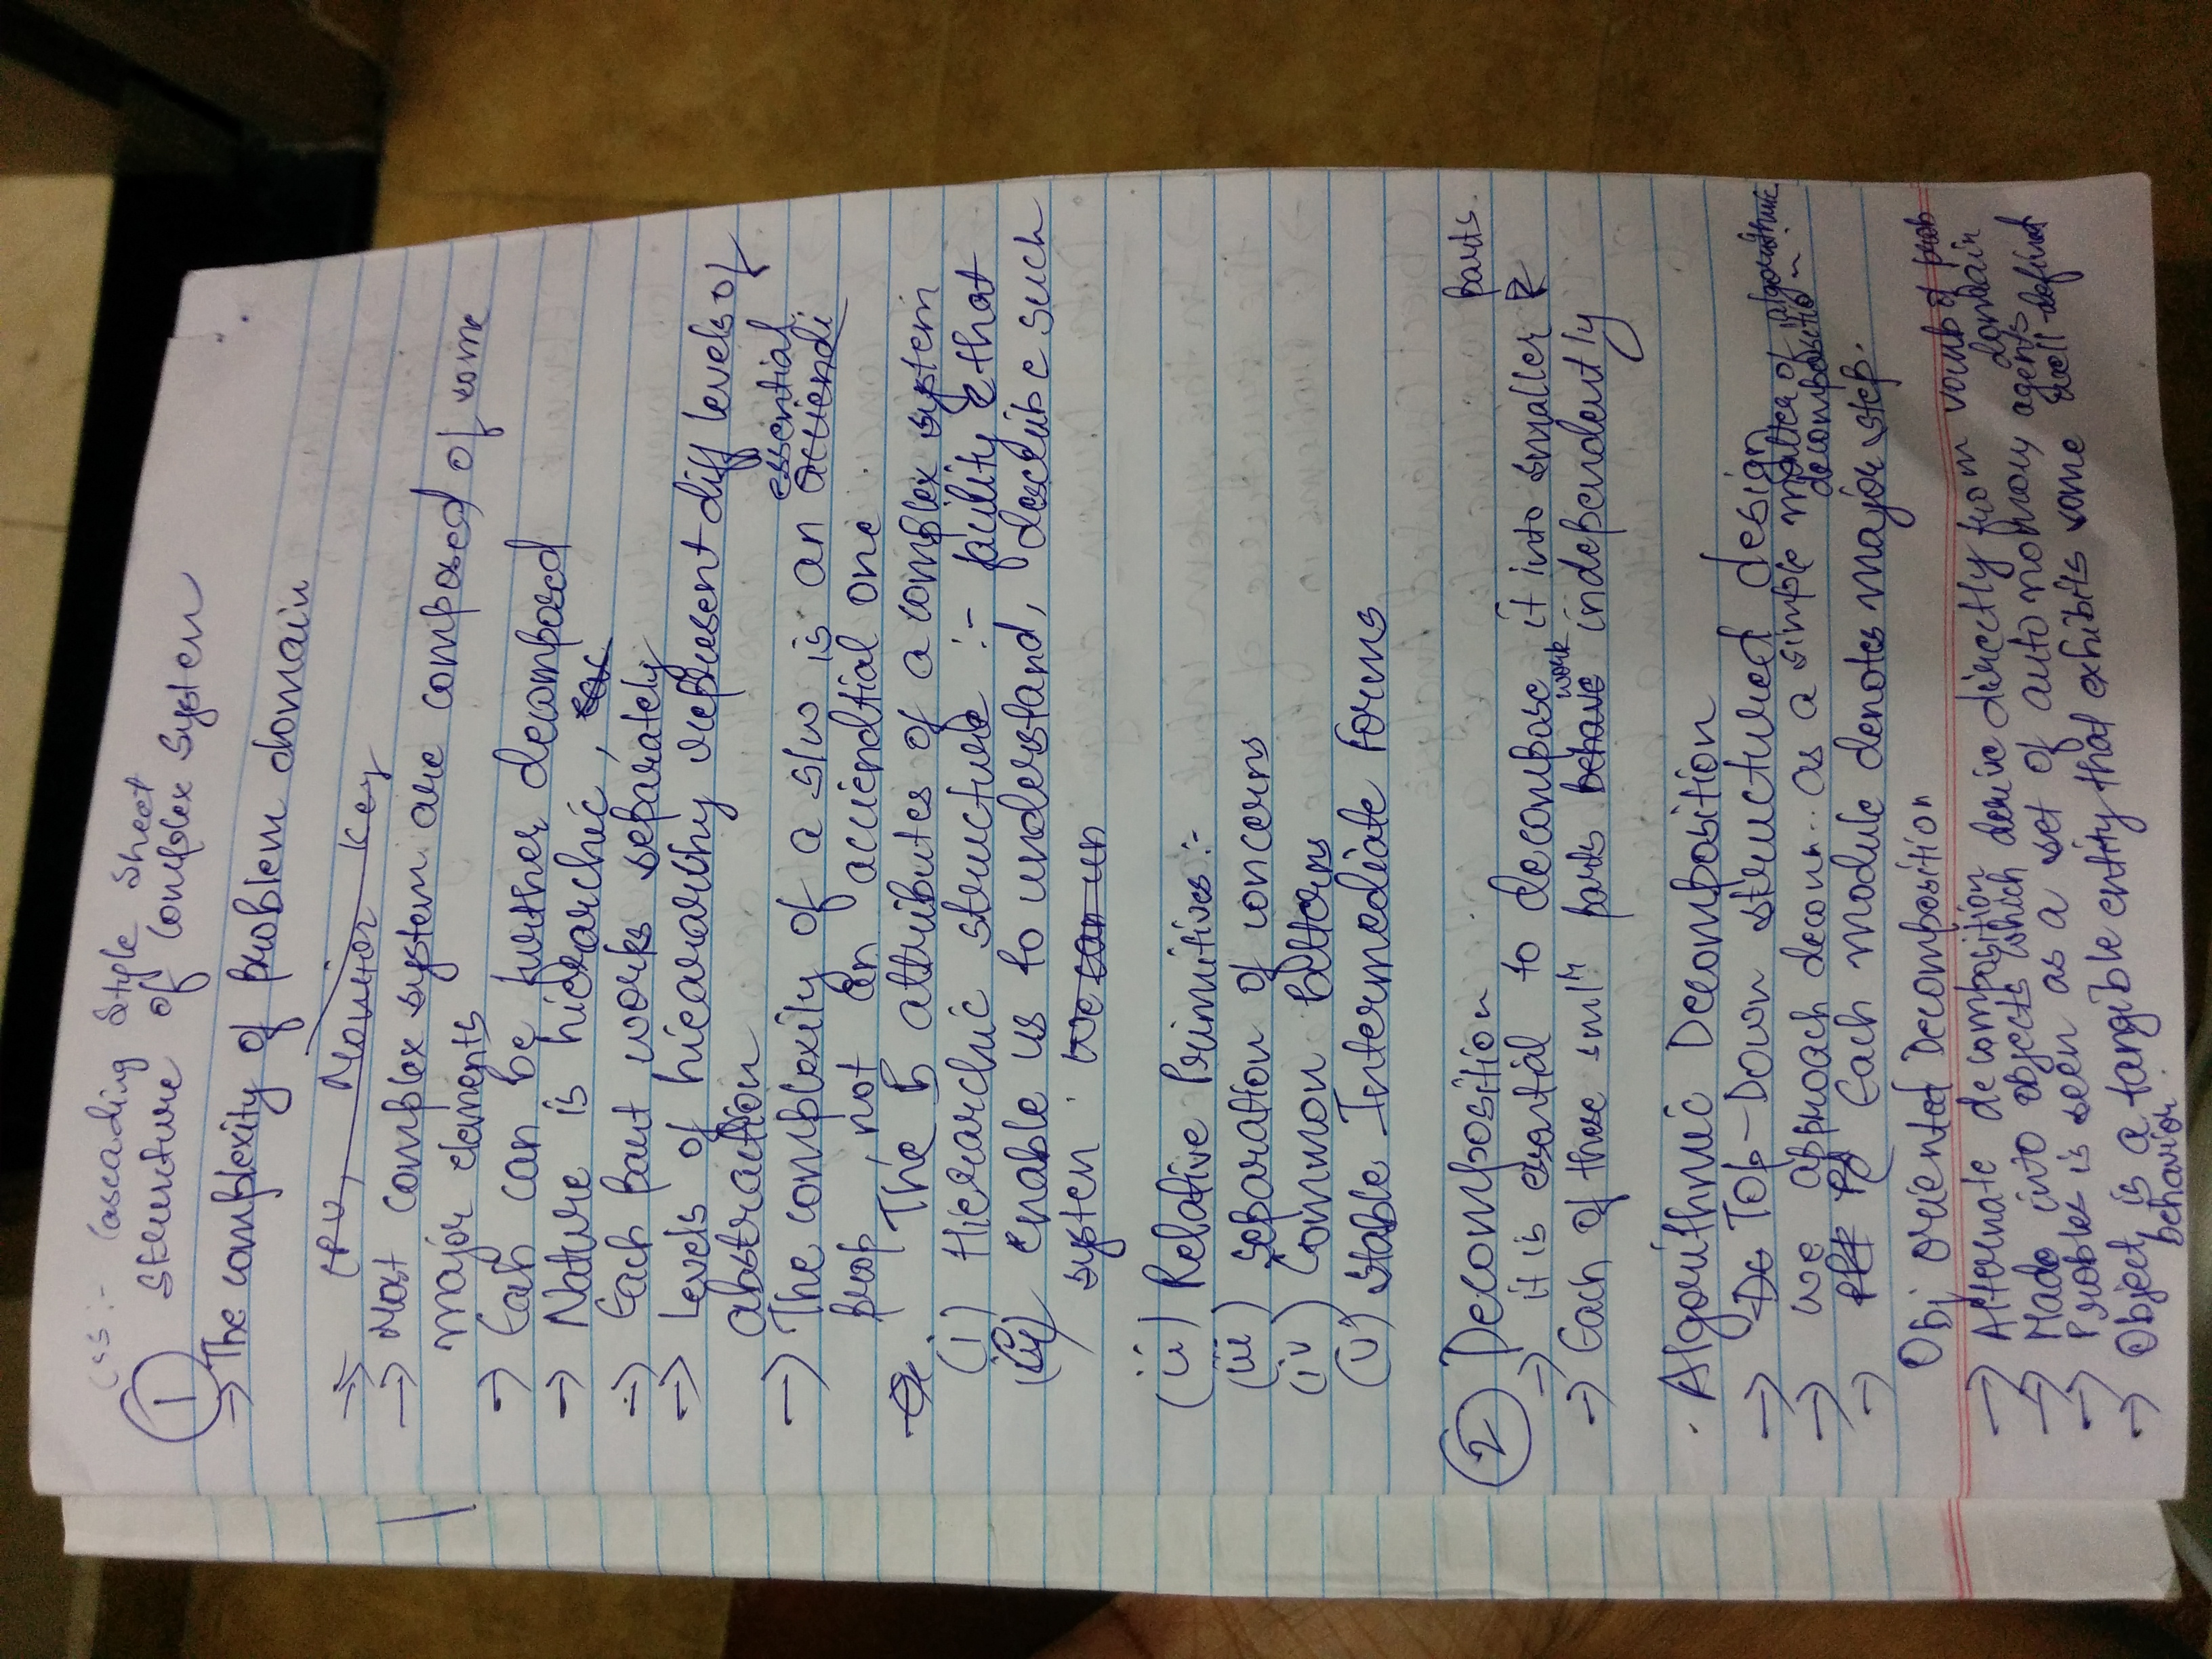 Css :- Cascading Style Sheet
① Structure of Complex System
→ The complexity of problem domain
→ CPU, Monitor key
→ Most complex system are composed of some
major elements
→ Each can be further decomposed
→ Nature is hierarchic,
→ Each part works separately
→ Levels of hierarchy represent diff levels of
abstraction
→ The complexity of a s/w is an essential accidendi
prop not an accidential one
The 5 attributes of a complex system
(i) Hierarchic structure :- facility that
enable us to understand, describe such
system. we can un
(ii) Relative Primitives :-
(iii) Separation of concerns
(iv) Common Patterns
(v) Stable Intermediate Forms
② Decomposition
→ it is essential to decompose it into smaller parts.
→ Each of these smll parts behave work independently
. Algorithmic Decomposition
→ Do Top-Down structured design
→ we approach decom... as a simple matter of algorithmic decompositon
→ Each module denotes major step.
Obj oriented Decomposition
→ Alternate decomposition
→ Made into objects which derive directly from vocab of prob domain
→ Problem is seen as a set of autonomous agents
→ Object is a tangible entity that exhibits some well-defind
behavior.